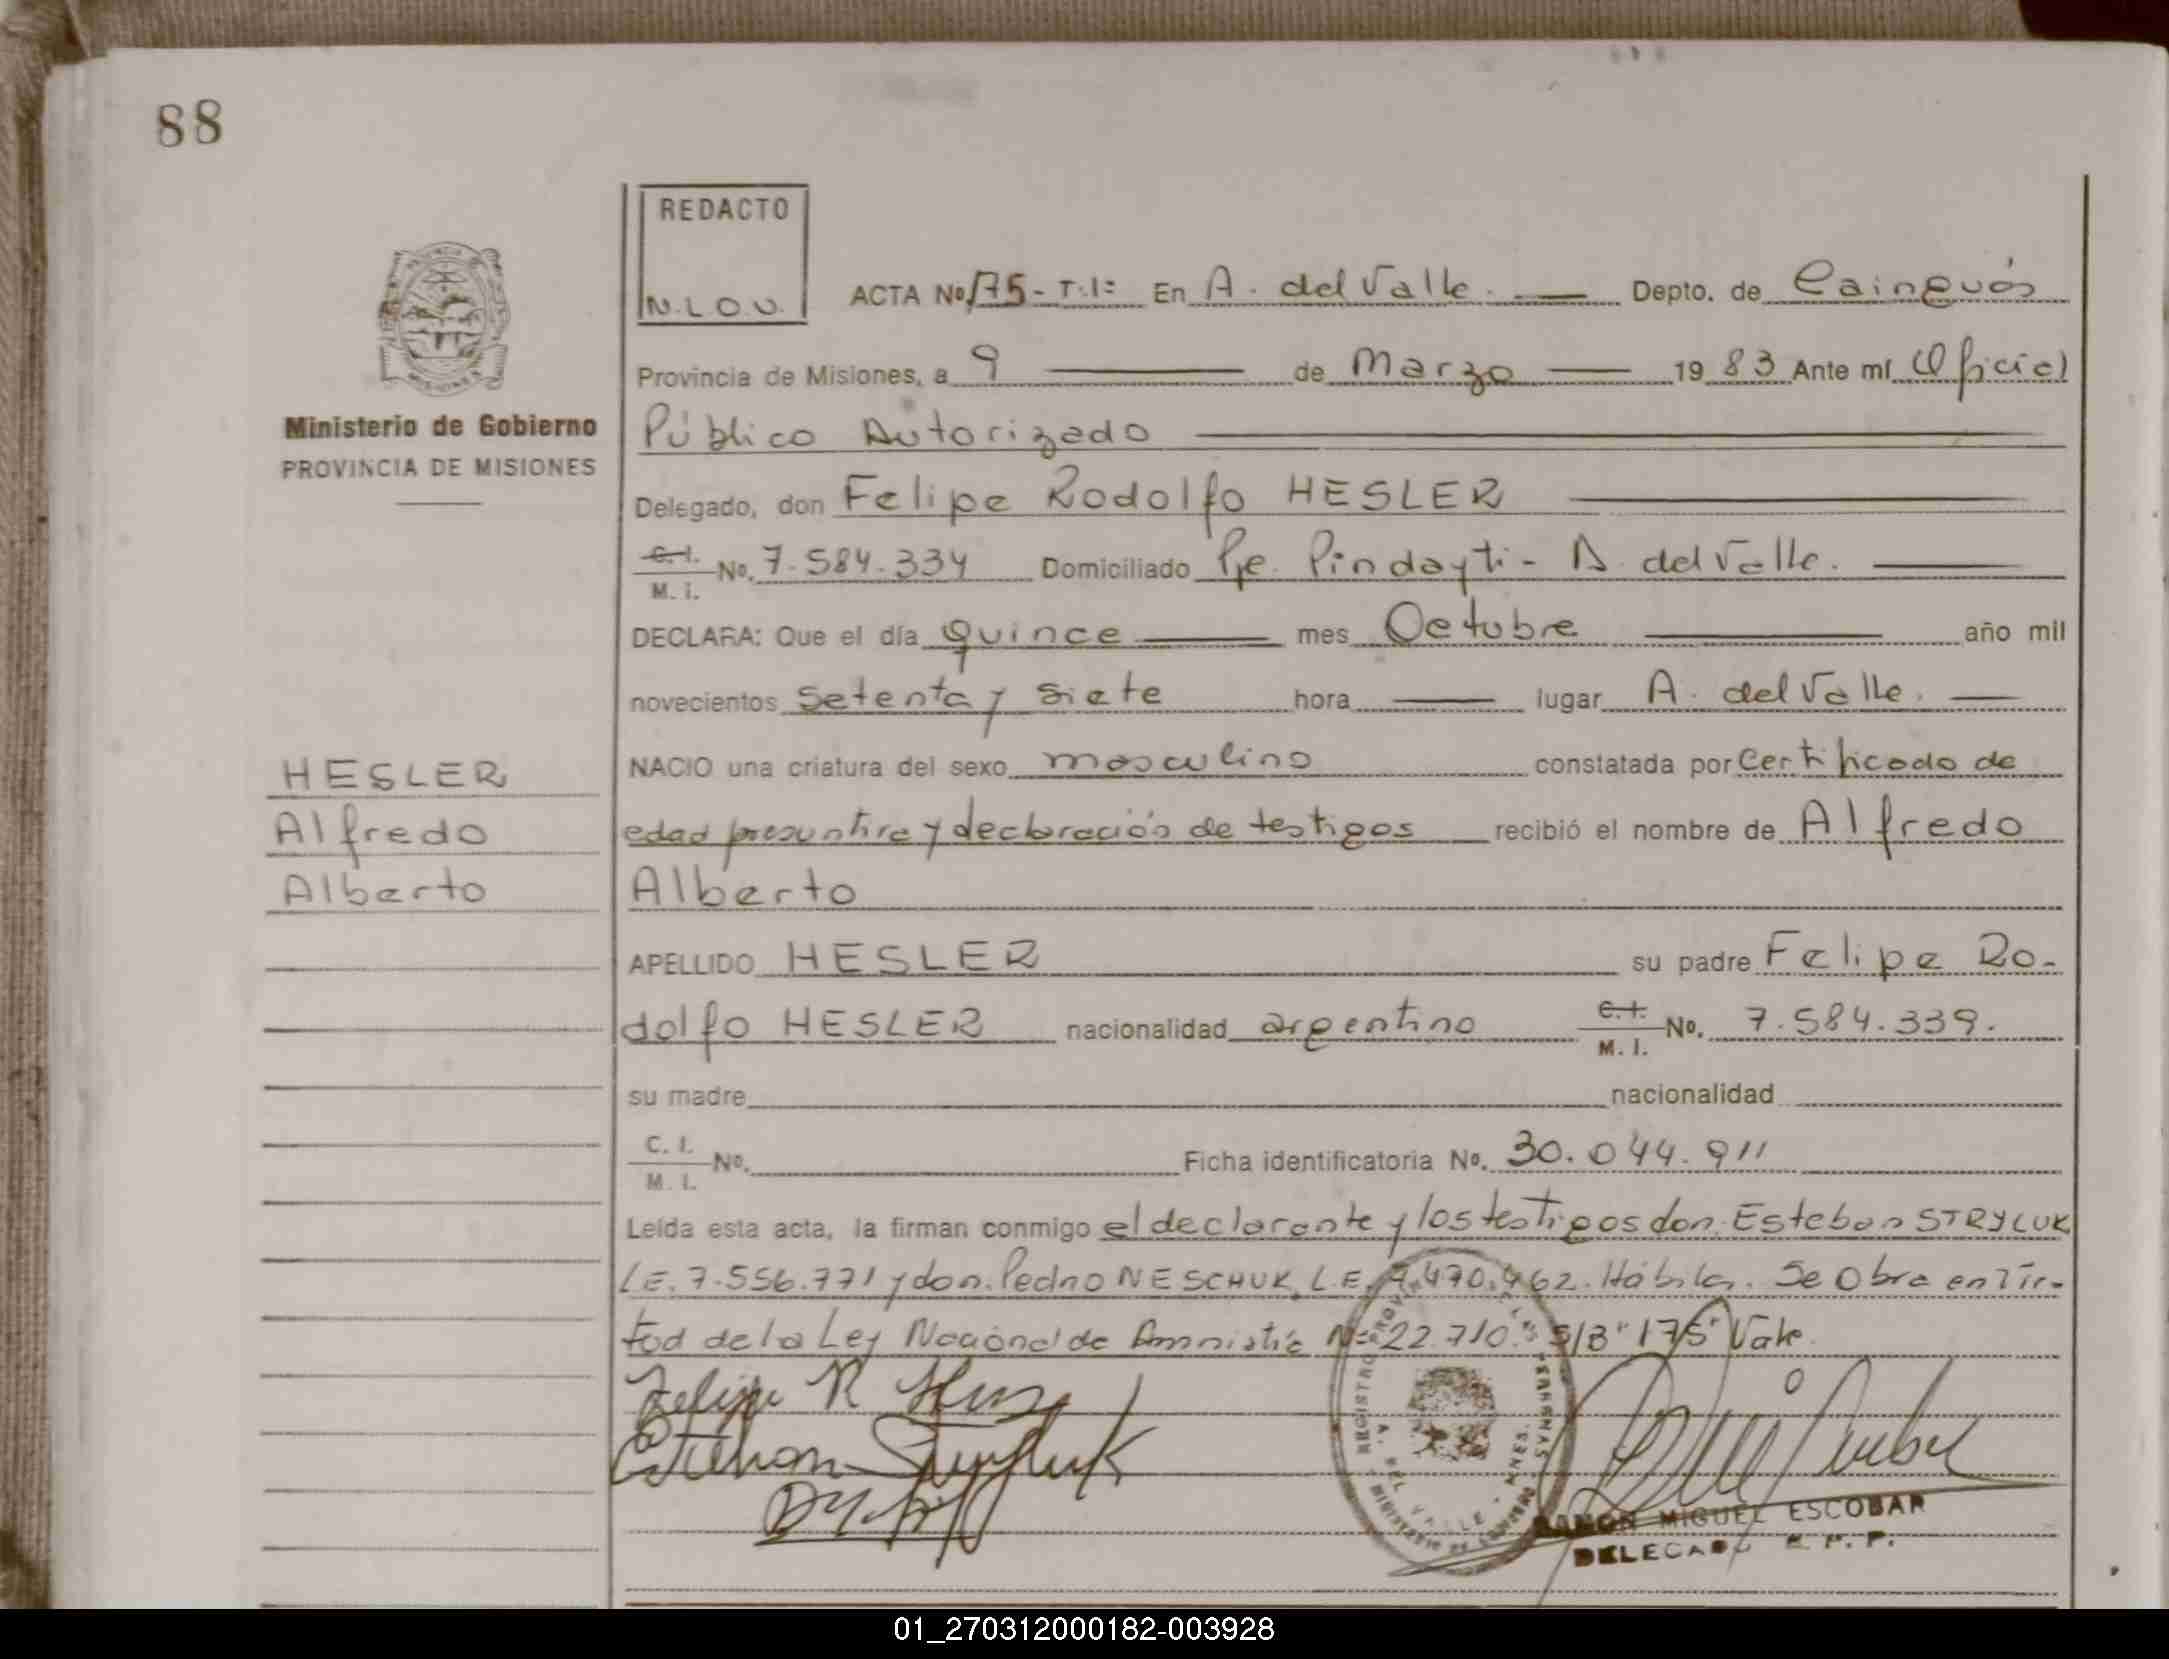 88
REDACTO
N.L.O.V.
ACTA No. 175 - T. 1º En A. del Valle. Depto. de Cainguás
Provincia de Misiones, a 9 de Marzo 1983 Ante mí Oficial
Público Autorizado
Ministerio de Gobierno
PROVINCIA DE MISIONES
Delegado, don Felipe Rodolfo HESLER
C. I.
M. I. No. 7.584.334 Domiciliado Pje. Pindayti - A. del Valle.
DECLARA: Que el día quince mes Octubre año mil
novecientos setenta y siete hora lugar A. del Valle.
NACIO una criatura del sexo masculino constatada por Certificado de
edad presuntiva y declaración de testigos recibió el nombre de Alfredo
Alberto
HESLER
Alfredo
Alberto
APELLIDO HESLER su padre Felipe Ro-
dolfo HESLER nacionalidad argentino C. I. M. I. No. 7.584.339.
su madre nacionalidad
C. I.
M. I. No. Ficha identificatoria No. 30.044.911
Leída esta acta, la firman conmigo el declarante y los testigos don. Esteban STRYLUK
L.E. 7.556.771 y don. Pedro NESCHUK, L.E. 7.470.462. Hábiles. Se Obra en Vir-
tud de la Ley Nacional de Amnistía Nº 22.710. S/B "175" Vale.
Felipe R
Esteban Stryluk
REGISTRO PROVINCIAL DE LAS PERSONAS
A. DEL VALLE - MNES.
MINISTERIO DE GOBIERNO
RAMON MIGUEL ESCOBAR
DELEGADO R. P. P.
01_270312000182-003928